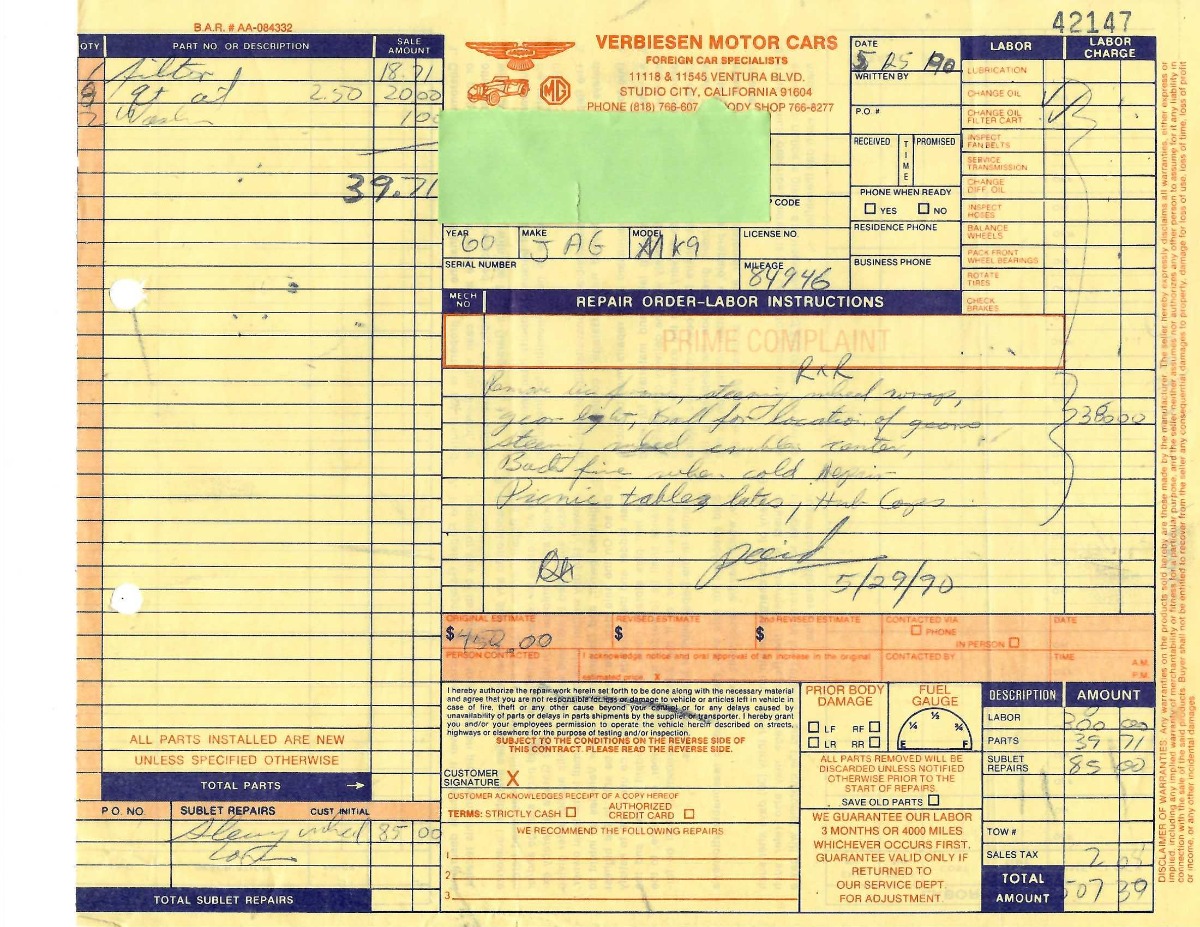 42147
B.A.R. # AA-084332
QTY PART NO. OR DESCRIPTION SALE AMOUNT
1 filter 18.71
8 qt oil 2.50 20 00
2 1 00
39.71
VERBIESEN MOTOR CARS
FOREIGN CAR SPECIALISTS
11118 & 11545 VENTURA BLVD.
STUDIO CITY, CALIFORNIA 91604
PHONE (818) 766-607 BODY SHOP 766-8277
MG
P CODE
YEAR 60 MAKE JAG MODEL MK9 LICENSE NO.
SERIAL NUMBER MILEAGE 84946
DATE 5 25 90
WRITTEN BY
P.O. #
RECEIVED TIME PROMISED
PHONE WHEN READY
YES NO
RESIDENCE PHONE
BUSINESS PHONE
LABOR LABOR CHARGE
LUBRICATION
CHANGE OIL
CHANGE OIL FILTER CART.
INSPECT FAN BELTS
SERVICE TRANSMISSION
CHANGE DIFF. OIL
INSPECT HOSES
BALANCE WHEELS
PACK FRONT WHEEL BEARINGS
ROTATE TIRES
CHECK BRAKES
MECH NO REPAIR ORDER-LABOR INSTRUCTIONS
PRIME COMPLAINT
R&R
steering wheel wrap,
gear light, Ball for location of gears
steering wheel emblem center,
Back fire when cold
Picnic tables , Hub Caps
380 00
paid
5/29/90
ORIGINAL ESTIMATE REVISED ESTIMATE 2nd REVISED ESTIMATE CONTACTED VIA DATE
$ 450.00 $ $ PHONE
IN PERSON
PERSON CONTACTED I acknowledge notice and oral approval of an increase in the original CONTACTED BY TIME A.M.
estimated price. X P.M.
I hereby authorize the repair work herein set forth to be done along with the necessary material
and agree that you are not responsible for loss or damage to vehicle or articles left in vehicle in
case of fire, theft or any other cause beyond your control or for any delays caused by
unavailability of parts or delays in parts shipments by the supplier or transporter. I hereby grant
you and/or your employees permission to operate the vehicle herein described on streets,
highways or elsewhere for the purpose of testing and/or inspection.
SUBJECT TO THE CONDITIONS ON THE REVERSE SIDE OF
THIS CONTRACT. PLEASE READ THE REVERSE SIDE.
CUSTOMER
SIGNATURE X
CUSTOMER ACKNOWLEDGES RECEIPT OF A COPY HEREOF
TERMS: STRICTLY CASH AUTHORIZED CREDIT CARD
WE RECOMMEND THE FOLLOWING REPAIRS
1
2
3
PRIOR BODY DAMAGE
LF RF
LR RR
FUEL GAUGE
E ¼ ½ ¾ F
ALL PARTS REMOVED WILL BE
DISCARDED UNLESS NOTIFIED
OTHERWISE PRIOR TO THE
START OF REPAIRS.
SAVE OLD PARTS
WE GUARANTEE OUR LABOR
3 MONTHS OR 4000 MILES
WHICHEVER OCCURS FIRST.
GUARANTEE VALID ONLY IF
RETURNED TO
OUR SERVICE DEPT.
FOR ADJUSTMENT.
DESCRIPTION AMOUNT
LABOR 00
PARTS 39 71
SUBLET REPAIRS 85 00
TOW #
SALES TAX 2 68
TOTAL AMOUNT 507 39
ALL PARTS INSTALLED ARE NEW
UNLESS SPECIFIED OTHERWISE
TOTAL PARTS
P.O. NO. SUBLET REPAIRS CUST. INITIAL
wheel 85 00
TOTAL SUBLET REPAIRS
DISCLAIMER OF WARRANTIES. Any warranties on the products sold hereby are those made by the manufacturer. The seller hereby expressly disclaims all warranties, either express or
implied, including any implied warranty of merchantability or fitness for a particular purpose, and the seller neither assumes nor authorizes any other person to assume for it any liability in
connection with the sale of the said products. Buyer shall not be entitled to recover from the seller any consequential damages to property, damage for loss of use, loss of time, loss of profit
or income, or any other incidental damages